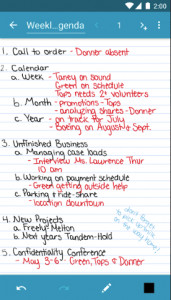 2:00
Weekl...genda
1
1. Call to order - Donner absent
2. Calendar
a. Week - Taney on sound
Green on schedule
Tops needs 2+ volunteers
b. Month - promotions - Tops
- analyzing shares - Donner
c. Year - on track for July
- Boeing on August & Sept.
3. Unfinished Business
a. Managing case loads
- Interview Ms. Lawrence Thur
10 am
b. Working on payment schedule
- Green getting outside help
c. Parking & Ride-Share
- location downtown
4. New Projects
a. Freely-Melton
b. Next years Tandem-Hold
5. Confidentiality Conference
- May 3-6: Green, Tops & Donner